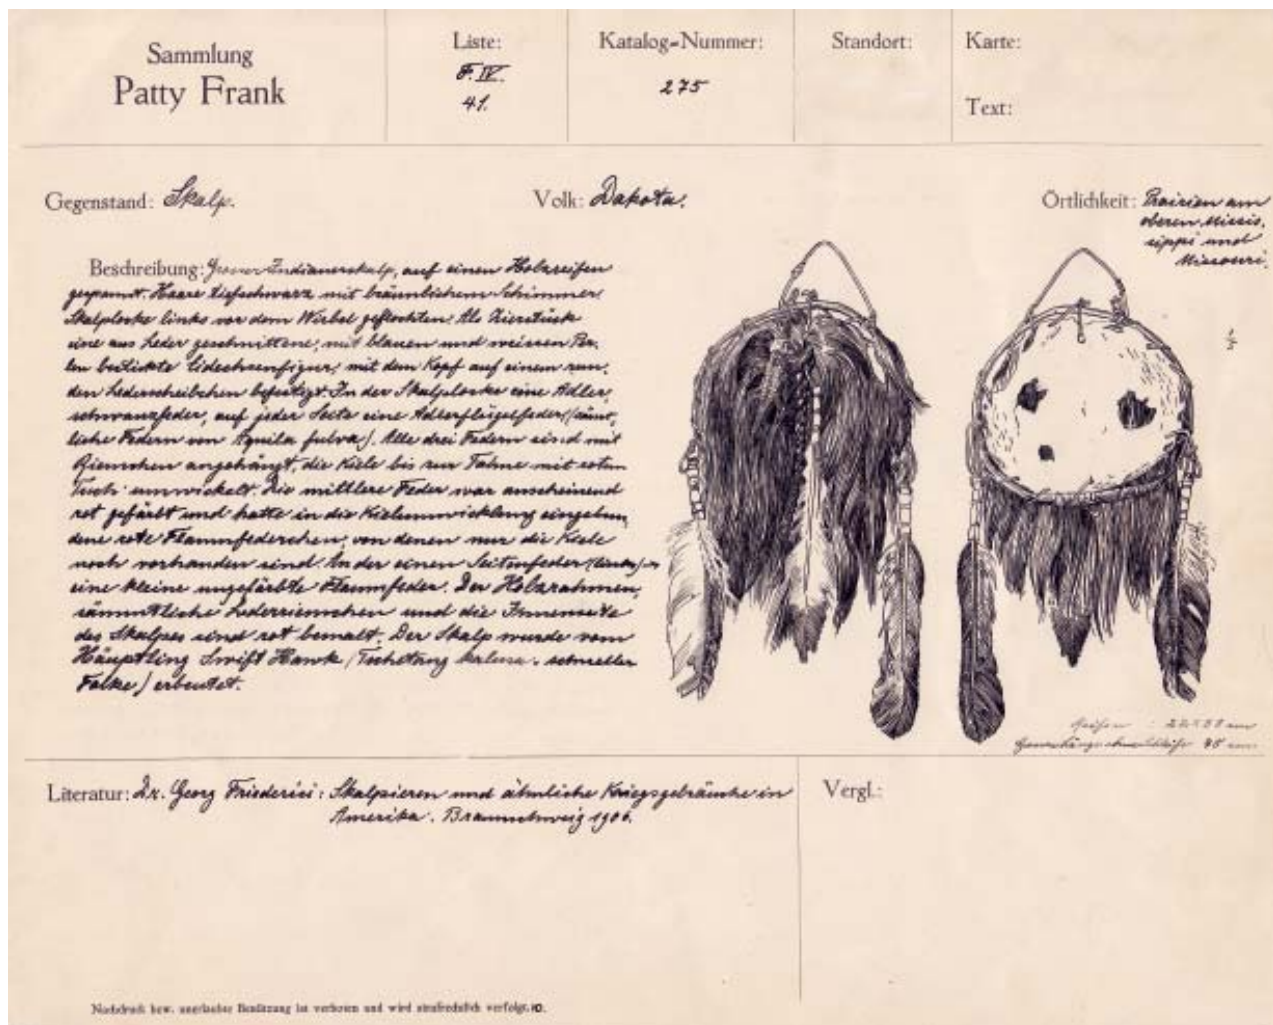 Sammlung
Patty Frank
Liste:
F. IV.
41.
Katalog-Nummer:
275
Standort:
Karte:
Text:
Gegenstand: Skalp.
Volk: Dakota.
Örtlichkeit: Prairien am
oberen Missis,
sippi und
Missouri.
Beschreibung: Indianerskalp, auf einen Holzreifen
gespannt. Haare tiefschwarz mit bräunlichem Schimmer.
Skalplocke links vor dem Wirbel geflochten. Als Zierstück
eine aus Leder geschnittene, mit blauen und weissen Per,
len bestickte Eidechsenfigur, mit dem Kopf auf einem run,
den Lederscheibchen befestigt. In der Skalplocke eine Adler,
schwanzfeder, auf jeder Seite eine Adlerflügelfeder (sämt,
liche Federn von Aquila fulva). Alle drei Federn sind mit
Riemchen angehängt, die Kiele bis zur Fahne mit rotem
Tuch umwickelt. Die mittlere Feder war anscheinend
rot gefärbt und hatte in die Kielumwicklung eingebun,
dene rote Flaumfederchen, von denen nur die Kiele
noch vorhanden sind. An der einen Seitenfeder (links)
eine kleine ungefärbte Flaumfeder. Der Holzrahmen,
sämmtliche Lederriemchen und die Innenseite
des Skalpes sind rot bemalt. Der Skalp wurde vom
Häuptling Swift Hawk (Tschetang schneller
Falke) erbeutet.
Reifen : cm
cm
Literatur: Dr. Georg Friederici: Skalpieren und ähnliche Kriegsgebräuche in
Amerika. Braunschweig 1906.
Vergl.:
Nachdruck bzw. unerlaubte Benützung ist verboten und wird strafrechtlich verfolgt.